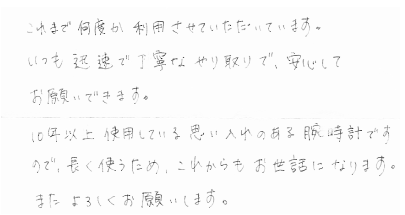 これまで何度か利用させていただいています。
いつも迅速で丁寧なやり取りで、安心して
お願いできます。
10年以上使用している思い入れのある腕時計です
ので、長く使うため、これからもお世話になります。
またよろしくお願いします。